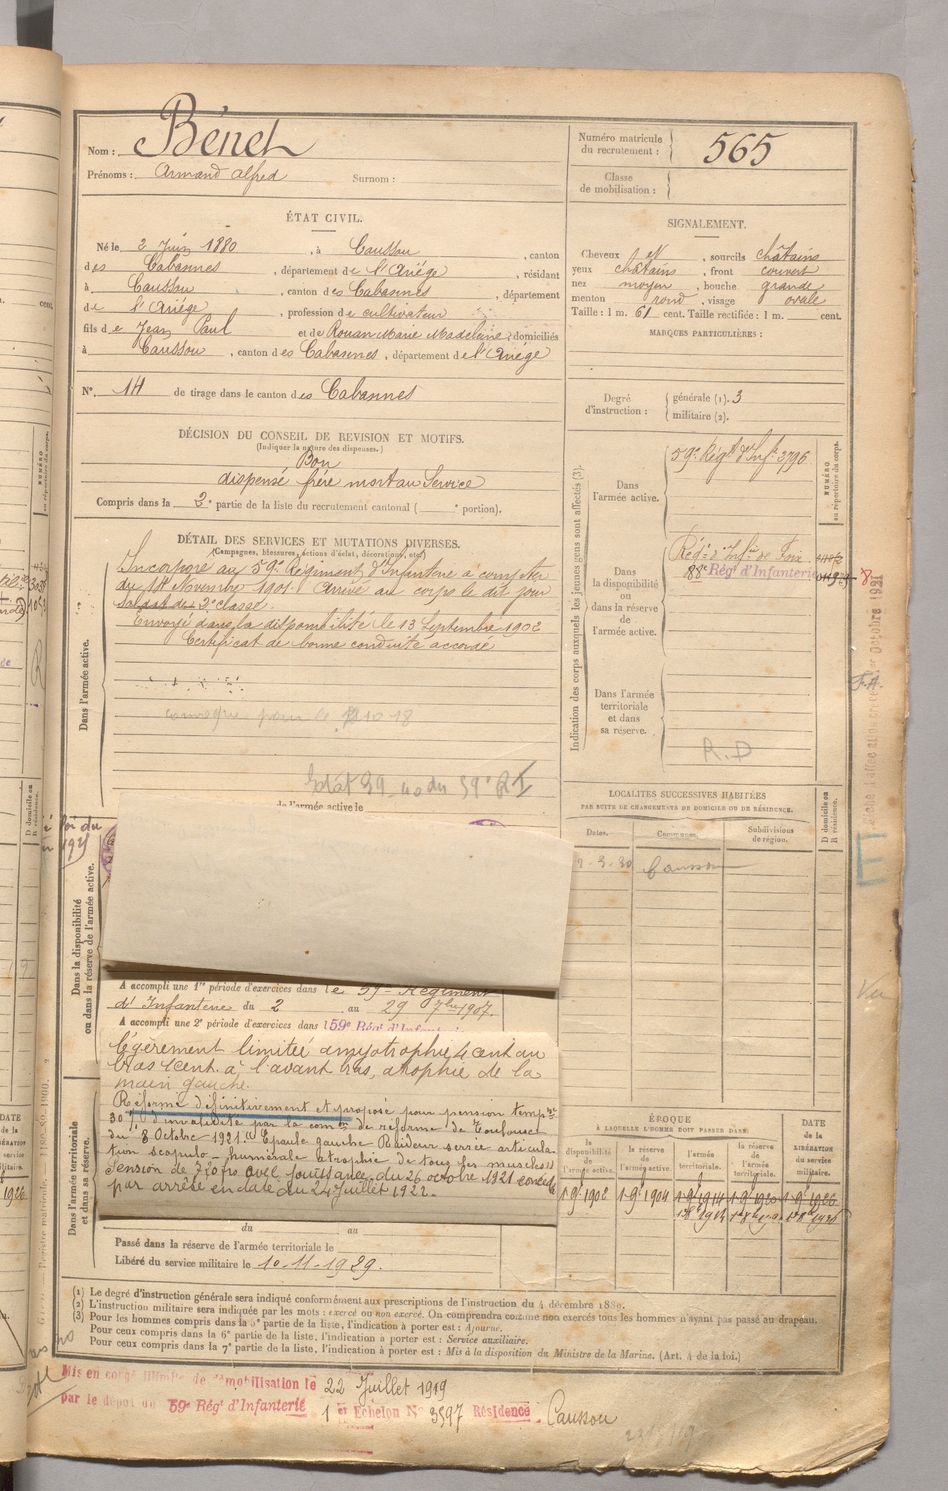 Nom : Bénet
Prénoms : Armand Alfred Surnom :
Numéro matricule du recrutement : 565
Classe de mobilisation :
ÉTAT CIVIL.
Né le 2 Juin 1880, à Caussou, canton
des Cabannes, département de l'Ariége, résidant
à Caussou, canton des Cabannes, département
de l'Ariége, profession de cultivateur
fils de Jean Paul et de Rouan Marie Madeleine, domiciliés
à Caussou, canton des Cabannes, département de l'Ariége
N° 14 de tirage dans le canton des Cabannes
SIGNALEMENT.
Cheveux et, sourcils châtains
yeux châtains, front couvert
nez moyen, bouche grande
menton rond, visage ovale
Taille : 1 m. 61 cent. Taille rectifiée : 1 m. cent.
MARQUES PARTICULIÈRES :
Degré d'instruction : générale (1). 3
militaire (2).
DÉCISION DU CONSEIL DE REVISION ET MOTIFS.
(Indiquer la nature des dispenses.)
Bon
dispensé frère mort au Service
Compris dans la 2e partie de la liste du recrutement cantonal ( e portion).
DÉTAIL DES SERVICES ET MUTATIONS DIVERSES.
(Campagnes, blessures, actions d'éclat, décorations, etc.)
Dans l'armée active.
Incorporé au 59e Régiment d'Infanterie à compter
du 14 Novembre 1901. Arrivé au corps le dit jour
Soldat de 2e classe.
Envoyé dans la disponibilité le 13 Septembre 1902
Certificat de bonne conduite accordé
10-18
39 du 59e RI
de l'armée active le
Indication des corps auxquels les jeunes gens sont affectés (3).
Dans l'armée active. 59e Régt d'Inf. 3796
NUMÉRO au répertoire du corps.
Dans la disponibilité ou dans la réserve de l'armée active.
Régt d'Infie de Foix
88e Régt d'Infanterie
Dans l'armée territoriale et dans sa réserve.
R.D
LOCALITÉS SUCCESSIVES HABITÉES
PAR SUITE DE CHANGEMENTS DE DOMICILE OU DE RÉSIDENCE.
Dates. Communes. Subdivisions de région. D domicile ou R résidence.
Caussou
Dans la disponibilité ou dans la réserve de l'armée active.
A accompli une 1re période d'exercices dans le 59e Régiment
d'Infanterie du 2 au 29 7bre 1907.
A accompli une 2e période d'exercices dans l 59e Régt d'Infanterie
légèrement limitée amyotrophie 4 cent au
bras 1 cent. à l'avant bras, atrophie de la
main gauche.
Réformé définitivement et proposé pour pension tempre
30% d'invalidité par la comon de réforme de Toulouse
du 8 Octobre 1921. Epaule gauche Raideur serrée articula-
tion scapulo-humérale atrophie de tous les muscles
Pension de 30% avec jouissance du 26 octobre 1921 concédée
par arrêté en date du 24 Juillet 1922.
Dans l'armée territoriale et dans sa réserve.
du au
Passé dans la réserve de l'armée territoriale le
Libéré du service militaire le 10-11-1929.
ÉPOQUE
À LAQUELLE L'HOMME DOIT PASSER DANS
la disponibilité de l'armée active. la réserve de l'armée active. l'armée territoriale. la réserve de l'armée territoriale. DATE de la LIBÉRATION du service militaire.
1-9-1902 1-9-1904 1-9-1914 1-9-1920 1-9-1926
(1) Le degré d'instruction générale sera indiqué conformément aux prescriptions de l'instruction du 4 décembre 1889.
(2) L'instruction militaire sera indiquée par les mots : exercé ou non exercé. On comprendra comme non exercés tous les hommes n'ayant pas passé au drapeau.
(3) Pour les hommes compris dans la 5e partie de la liste, l'indication à porter est : Ajourné.
Pour ceux compris dans la 6e partie de la liste, l'indication à porter est : Service auxiliaire.
Pour ceux compris dans la 7e partie de la liste, l'indication à porter est : Mis à la disposition du Ministre de la Marine. (Art. 4 de la loi.)
Mis en congé illimité de démobilisation le 22 Juillet 1919
par le dépôt du 59e Régt d'Infanterie 1er Echelon N° 3597 Résidence Caussou